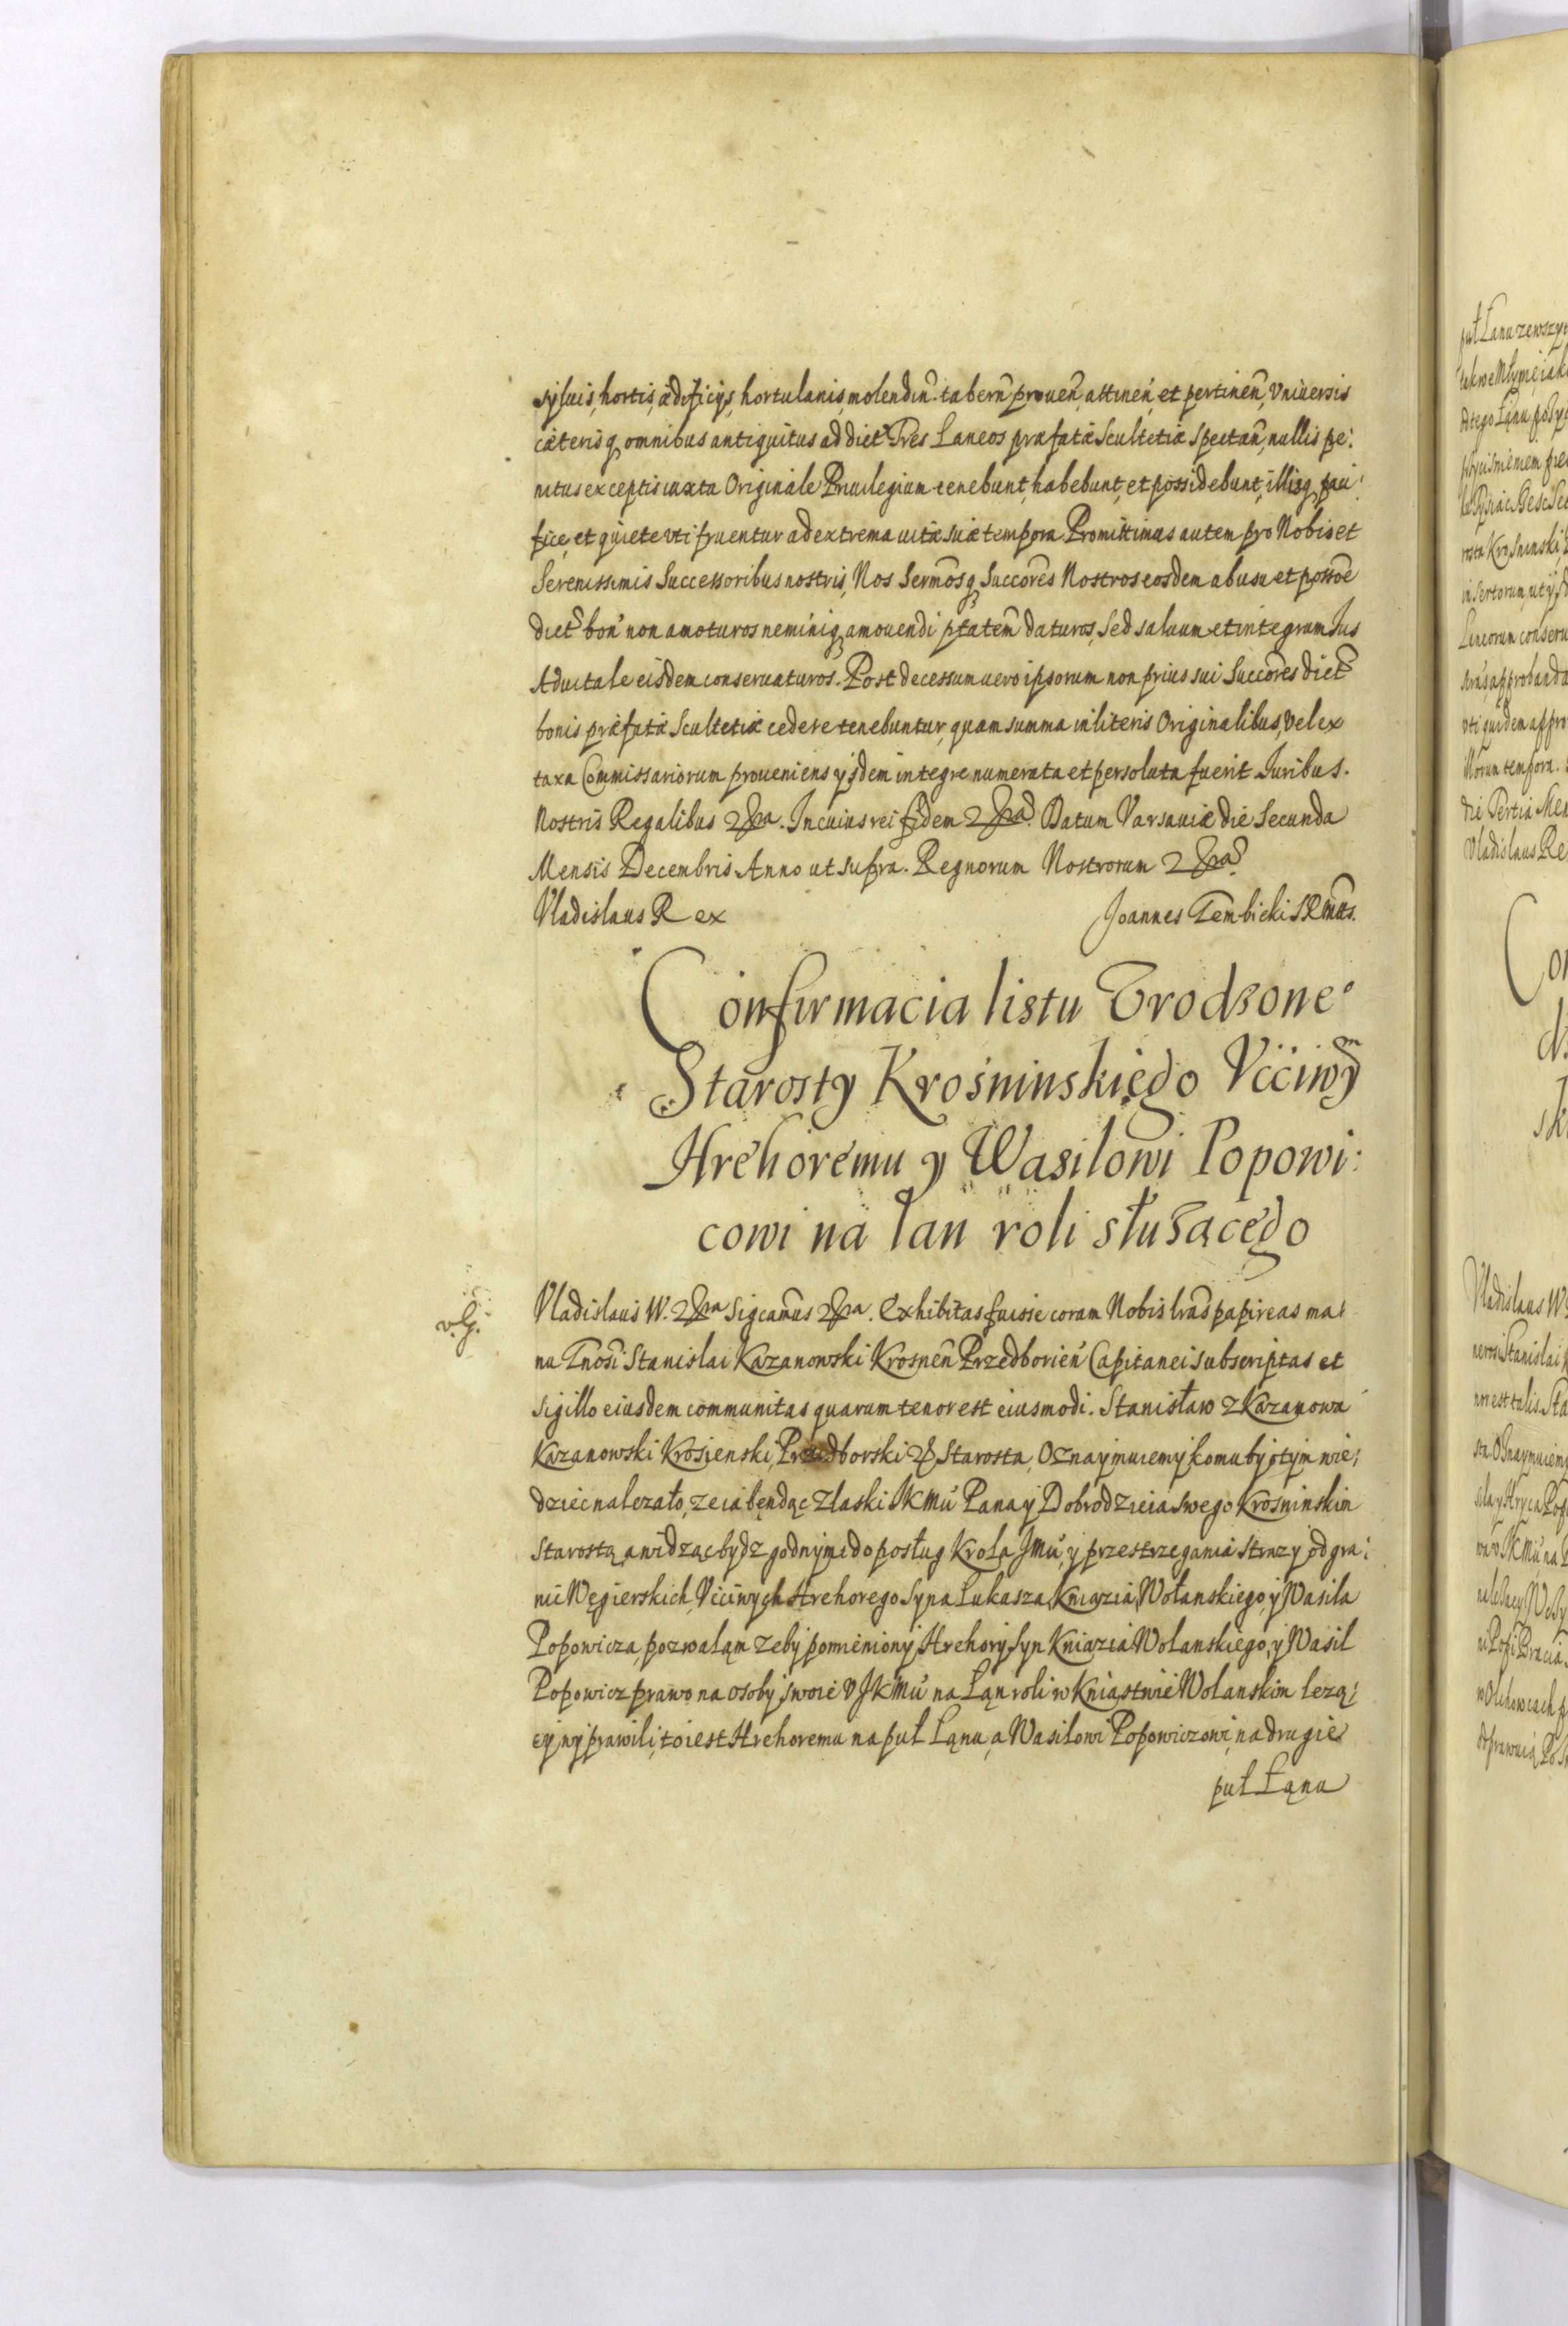 syluis, hortis, ædificijs, hortulanis, molendin̄. tabern̄ prouen̄, attinen̄, et pertinen̄, Vniuersis
cæterisq omnibus antiquitus ad dict Tres Laneos præfatæ Scultetiæ Spectan̄, nullis pe:
nitus exceptis iuxta Originale Priuilegium tenebunt, habebunt, et possidebunt, illisq, paci:
fice, et quiete vti fruentur ad extrema uitæ suæ tempora. Promittimus autem pro Nobis et
Serenissimis Successoribus nostris, Nos Serm̄osq Succor̄es Nostros eosdem ab usu et posso͞e
dict bon̄ non amoturos neminiq amouendi ptatem̄ daturos, Sed saluum et integrum Jus
Aduitale eisdem conseruaturos. Post decessum uero ipsorum non prius sui Succor̄es dict
bonis præfatæ Scultetiæ cedere tenebuntur, quam summa in literis Originalibus, Vel ex
taxa Commissariorum proueniens ijsdem integre numerata et persoluta fuerit Juribus.
Nostris Regalibus &ra. In cuius rei fidem &ra. Datum Varsauiæ die Secunda
Mensis Decembris Anno ut supra. Regnorum Nostrorum &ra
Vladislaus Rex Joannes Gembicki SRMtts.
Confirmacia listu Vrodzone°
Starosty Krośninskiego Vćciwy̅
Hrehoremu y Wasilowi Popowi:
cowi na łan roli słuzącego
v.G.
Vladislaus IV. &ra Sigcam̄us &ra. Exhibitas fuisse coram Nobis lrās papireas ma:
nu Gn̄osi Stanislai Kazanowski Krosnen̄ Przedborien̄ Capitanei subscriptas et
sigillo eiusdem communitas quarum tenor est eiusmodi. Stanisław z Kazanowa
Kazanowski Krosienski, Przedborski & Starosta, Oznaymuiemy komu by o tym wie:
dziec nalezało, ze ia będąc z łaski JKMći Pana y Dobrodzieia swego Krosninskim
Starostą a widząc bydz godnymi do posług Krola JMći, y przestrzegania strazy od gra:
nic Węgierskich, Vcciwych Hrehorego Syna Łukasza, Kniazia, Wołanskiego, y Wasila
Popowicza, pozwalam zeby pomieniony Hrehory Syn Kniazia Wołanskiego, y Wasil
Popowicz prawo na osoby swoie V JKMći na Łąn roli w Kniastwie Wolanskim lezą:
cy, wyprawili, to iest Hrehoremu na puł Łąnu, a Wasilowi Popowiczowi, na drugie
puł Łąnu